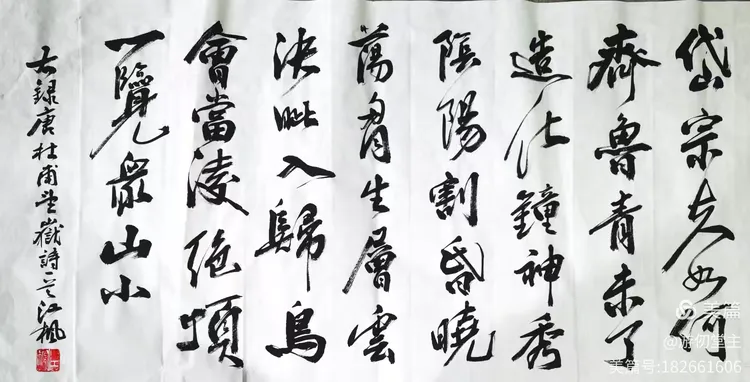 岱宗夫如何
齊魯青未了
造化鐘神秀
陰陽割昏曉
蕩胷生層雲
決眦入歸鳥
會當淩絕頂
一覽衆山小
右録唐杜甫望嶽詩 江楓
美篇
@游仞堂主
美篇号:182661606